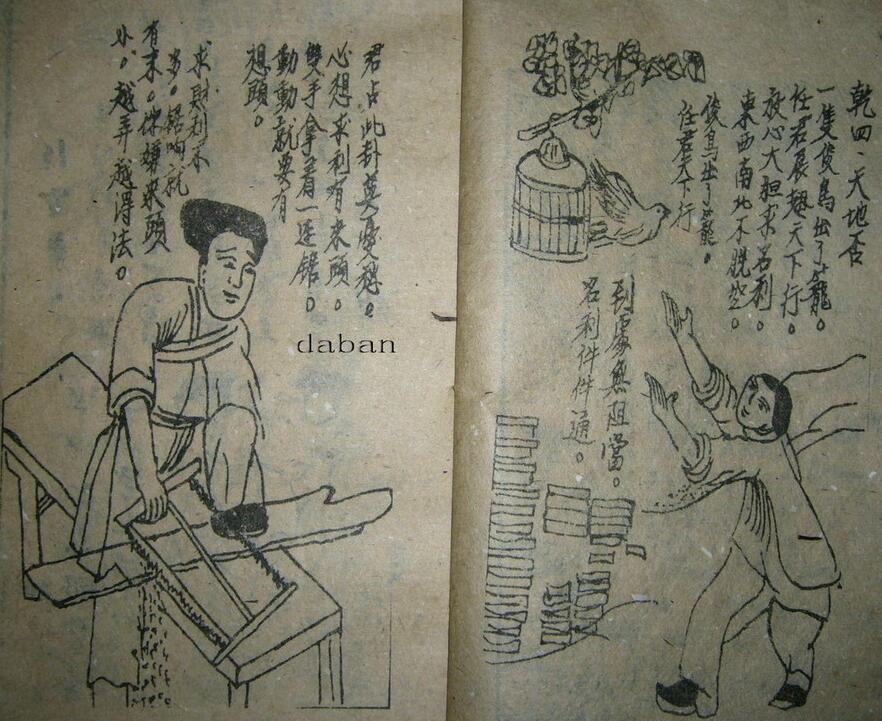 乾四、天地否
一隻俊鳥出了籠。
任君展翅天下行。
放心大胆求名利。
東西南北不脱空。
俊鳥出了籠。
任君天下行
到處無阻當。
名利件件通。
君占此卦莫憂愁。
心想求利有來頭。
雙手拿着一連鋸。
動動就要有
想頭。
求財利不
多。鋸响就
有末。你嫌來頭
小。越弄越得法。
daban